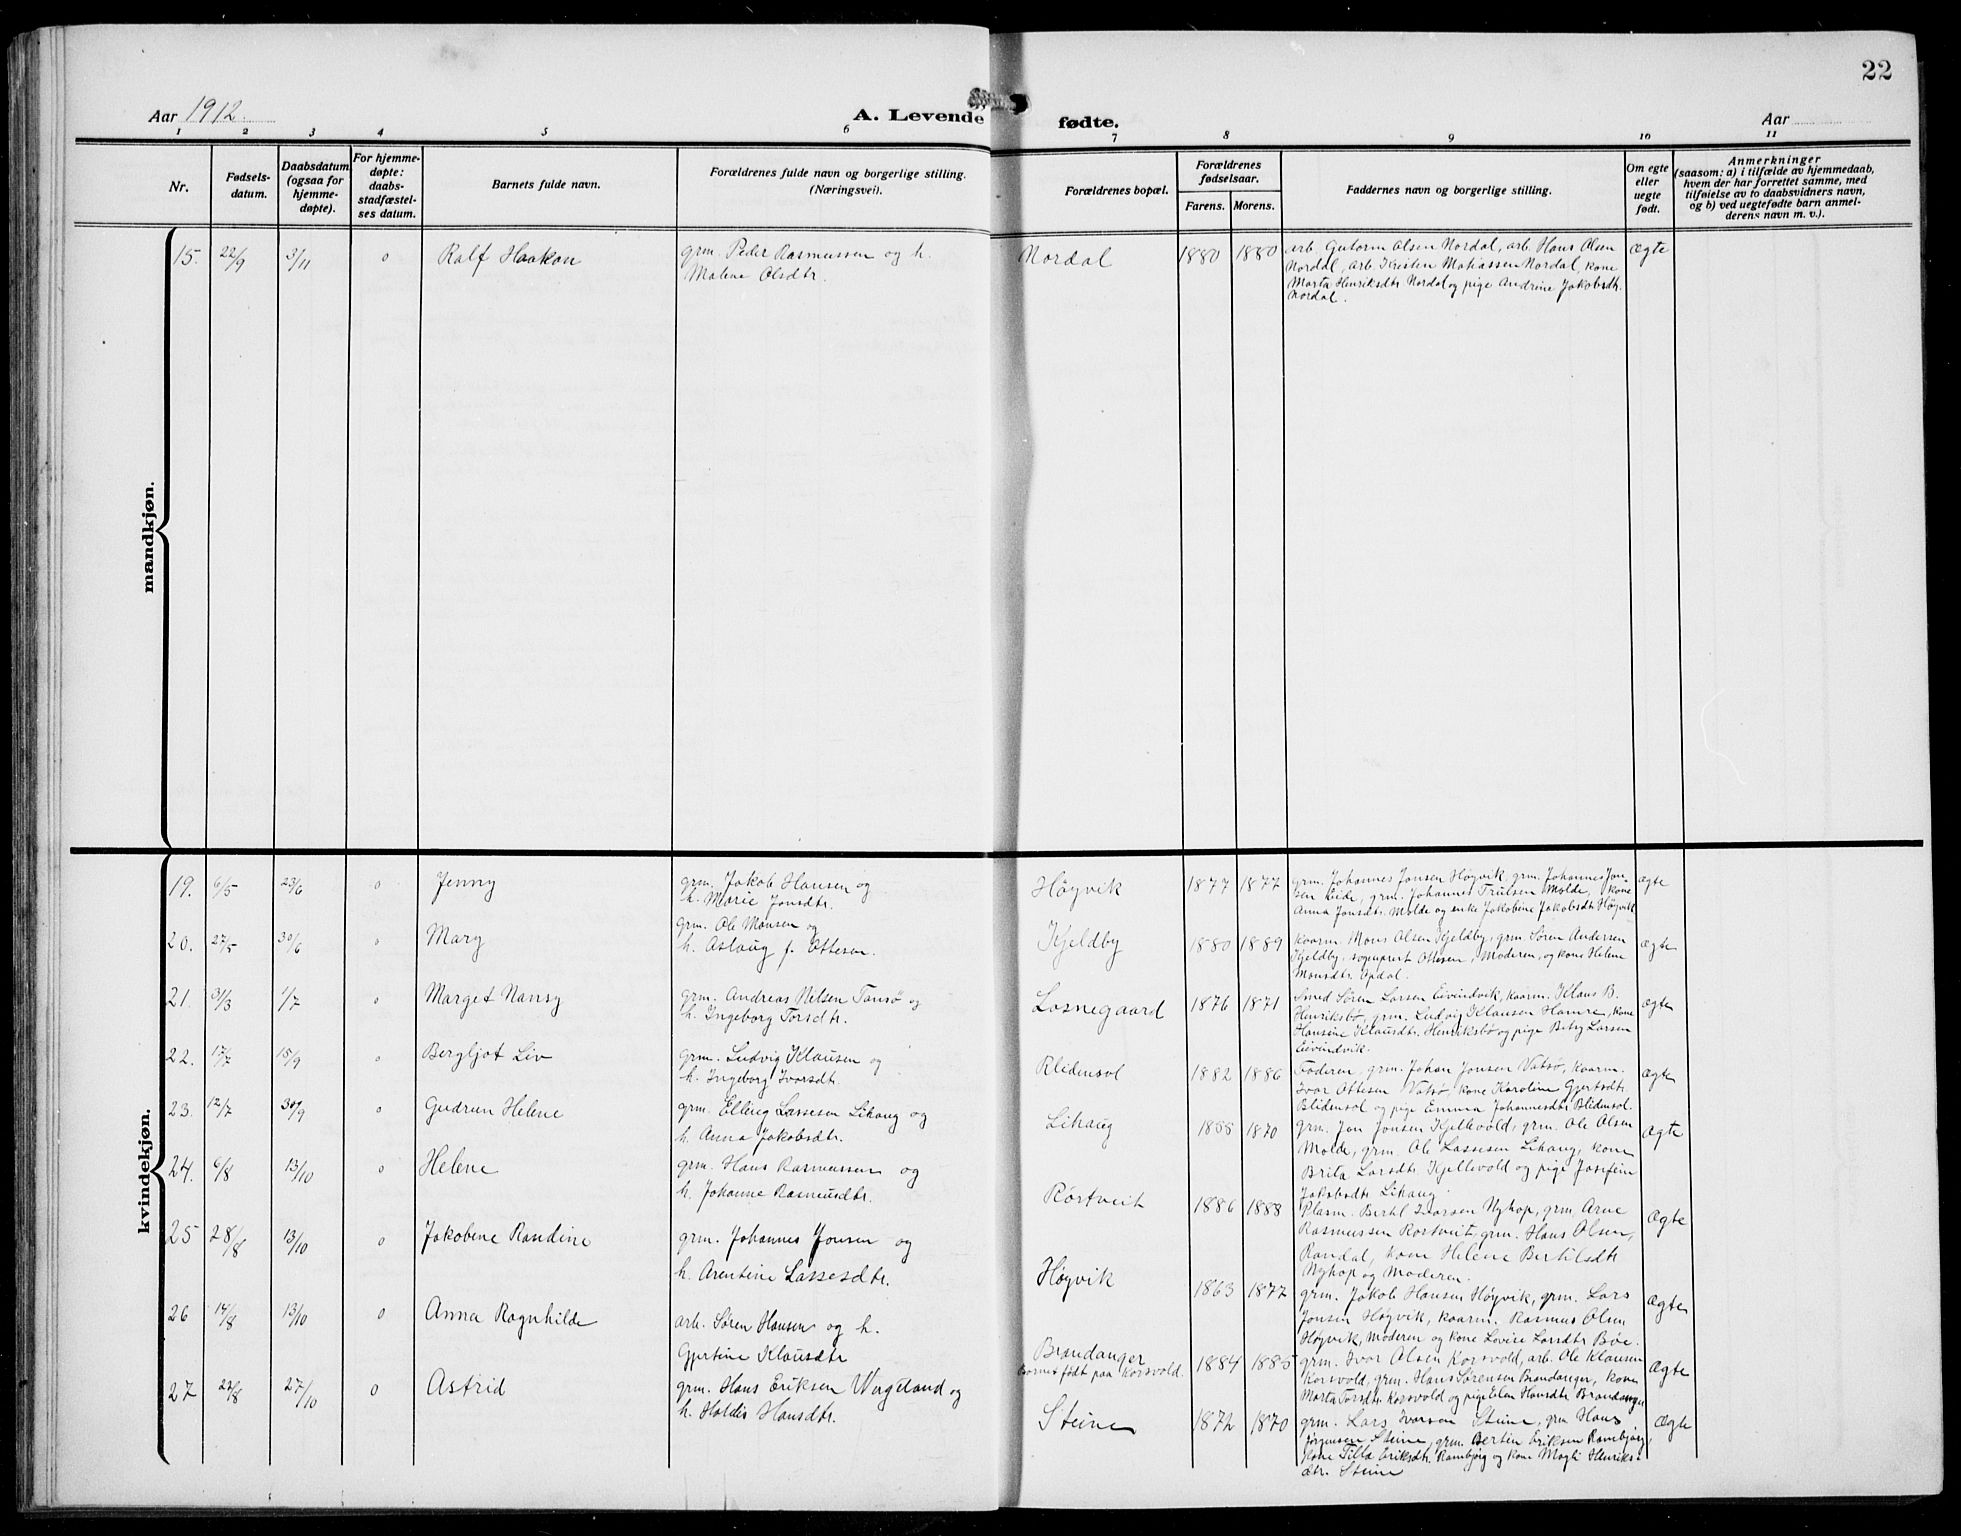 22
Aar 1912.
A. Levende fødte.
Aar
1 2 3 4 5 6 7 8 9 10 11
Nr.
Fødsels-
datum.
Daabsdatum
(ogsaa for
hjemme-
døpte).
For hjemme-
døpte:
daabs-
stadfæstel-
ses datum.
Barnets fulde navn.
Forældrenes fulde navn og borgerlige stilling.
(Næringsvei).
Forældrenes bopæl.
Forældrenes
fødselsaar.
Farens. Morens.
Faddernes navn og borgerlige stilling.
Om egte
eller
uegte
født.
Anmerkninger
(saasom: a) i tilfælde av hjemmedaab,
hvem der har forrettet samme, med
tilføielse av to daabsvidners navn,
og b) ved uegtefødte barn anmel-
derens navn m. v.).
mandkjøn.
15. 22/9 3/11 0 Ralf Haakon
grm. Peder Rasmussen og h.
Malene Olsdtr.
Nordal 1880 1880
arb. Gutorm Olsen Nordal, arb. Hans Olsen
Nordal, arb. Kristen Matiassen Nordal, kone
Marta Henriksdtr Nordal og pige Andrine Jakobsdtr.
Nordal.
Ægte
kvindekjøn.
19. 6/5 23/6 0 Jenny
grm. Jakob Hansen og
h. Marie Jonsdtr.
Høyvik 1877 1877
grm. Johannes Jonsen Høyvik, grm. Johannes Jon-
sen Eide, grm. Johannes Trulsen Molde, kone
Anna Jonsdtr. Molde og enke Jakobine Jakobsdtr Høyvik
Ægte
20. 27/5 30/6 0 Mary
grm. Ole Monsen og
h. Aslaug f. Ottesen.
Kjeldby 1880 1889
kaarm. Mons Olsen Kjeldby, grm. Søren Andersen
Kjeldby, sogneprest Ottesen, Moderen, og kone Helene
Monsdtr. Opdal.
Ægte
21. 31/3 1/7 0 Marget Nansy
grm. Andreas Nilsen Tansø og
h. Ingeborg Torsdtr.
Losnegaard 1876 1871
Smed Søren Larsen Eivindvik, kaarm. Klaus B.
Henriksbø, grm. Ludvig Klausen Hamre, kone
Hansine Klausdtr. Henriksbø og pige Betsy Larsen
Eivindvik.
Ægte
22. 17/7 15/9 0 Bergljot Liv
grm. Ludvig Klausen og
h. Ingeborg Ivarsdtr.
Blidensol 1882 1886
Faderen, grm. Johan Jonsen Vatsø, kaarm.
Ivar Ottesen Vatsø, kone Karoline Gjertsdtr.
Blidensol og pige Emma Johannesdtr Blidensol.
Ægte
23. 12/7 30/9 0 Gudrun Helene
grm. Elling Lassesen Lihaug og
h. Anna Jakobsdtr.
Lihaug 1858 1870
grm. Jon Jonsen Kjellevold, grm. Ole Olsen
Molde, grm. Ole Lassesen Lihaug, kone
Brita Larsdtr Kjellevold og pige Josefine
Jakobsdtr. Lihaug
Ægte
24. 6/8 13/10 0 Helene
grm. Hans Rasmussen og
h. Johanne Rasmusdtr.
Røstveit 1886 1888
Plasm. Bertel Ivarsen Nyhop, grm. Arne
Rasmussen Røstveit, grm. Hans Olsen,
Randal, kone Helene Bertilsdtr
Nyhop og Moderen.
Ægte
25 28/8 13/10 0 Jakobine Randine
grm. Johannes Jonsen og
h. Arentine Lassesdtr.
Høyvik 1863 1877
grm. Jakob Hansen Høyvik, grm. Lars
Jonsen Høyvik, kaarm. Rasmus Olsen
Høyvik, Moderen og kone Lovise Larsdtr Bøe.
Ægte
26 14/8 13/10 0 Anna Ragnhilde
arb. Søren Hansen og h.
Gjertine Klausdtr
Brandanger
Barnet født paa Korsvold. 1884 1885
grm. Ivar Olsen Korsvold, arb. Ole Klausen
Korsvold, grm. Hans Sørensen Brandanger, kone
Marta Torsdtr Korsvold og pige Elen Hansdtr Brandanger
Ægte
27 22/8 27/10 0 Astrid
grm. Hans Eriksen Wergeland og
h. Haldis Hansdtr.
Steine 1872 1870
grm. Lars Ivarsen Steine, grm. Hans
Jørgensen Steine, grm. Bertin Eriksen Rambjørg,
kone Tilla Eriksdtr. Rambjørg og kone Magli Henriks-
dtr. Steine
Ægte